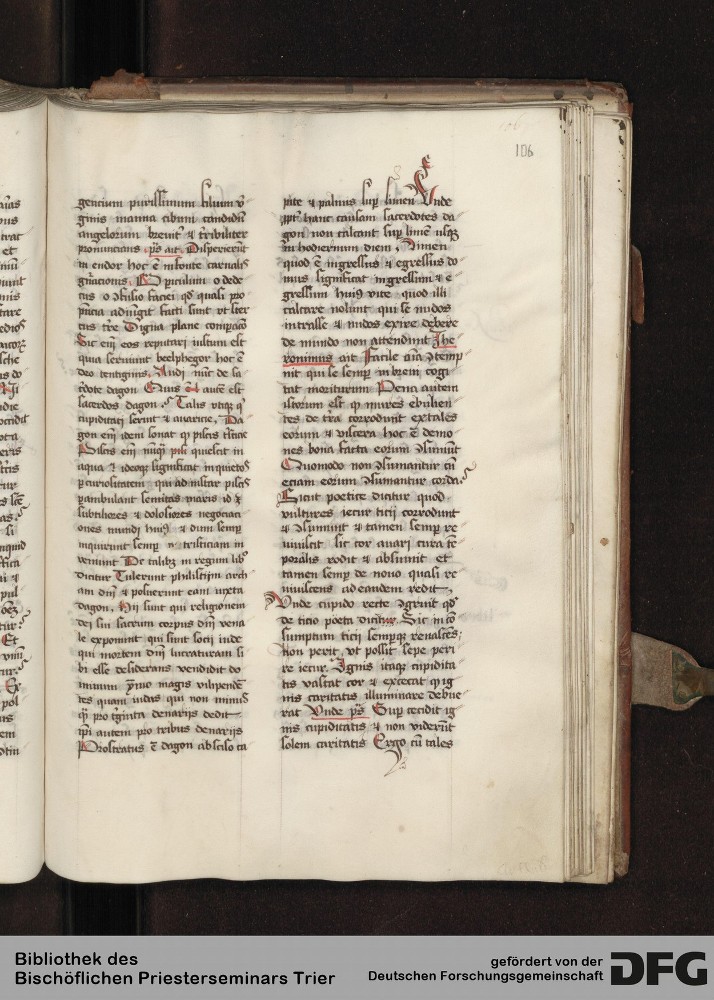 106
gencium purissimum filium v̄
ginis manna cibum candidū
angelorum breuit᷑ ⁊ tribiliter
pronuncians. ps̄ ait Disperierūt
in endor hoc ē in fonte carnalis
gn̄acionis
cus
pn̄cia adiungit facti sunt vt ster
cus tr̄e Digna plane compacō
Sic em̄ eos reputari iustum est
quia seruiunt beelphegor hoc ē
deo tentiginis. Audi nūc de sa
c̄dote dagon Quis aūt est
sacerdos dagon. Talis vtiqꝫ qⁱ
cupiditati seruit ⁊ auaricie. Da
gon em̄ idem sonat qd̄ piscis
Piscis em̄ nūqᷓ quiescit in
aqua ⁊ ideoqꝫ significat inquietos
ꝑ curiositatem qui ad instar piscis
ꝑambulant semitas maris id ē
subtiliores ⁊ dolosiores negociati
ones mundi huiꝰ ⁊ dum semꝑ
inquirunt semꝑ tristiciam in
ueniunt De talibꝫ in regum libº
dicitur Tulerunt philistijm arch
am dn̄i ⁊ posuerunt eam iuxta
dagon. Hij sunt qui religionem
dei siu sacrum corpus dn̄i vena
le exponunt qui sunt socij iude
qui mortem dn̄i lucraturam si
bi esse desiderans vendidit do
minum ymo magis vilipende
tes quam iudas qui non minꝰ
qᷓ pro tⁱginta denarijs dedit
ip̄i autem pro tribus denarijs
Prostratus ē dagon absciso ca
pite ⁊ palmis suꝑ limen Vnde
ppt᷑ hanc causam sacerdotes da
gon non calcant suꝑ limē usqꝫ
in hodiernum diem. Limen
quod ē ingressus ⁊ egressus do
mus significat ingressum ⁊ e
gressum huiꝰ vite quod illi
calcare nolunt qui se nudos
intrasse ⁊ nudos exire debere
de mundo non attendunt Jhe
ronimus ait Facile oīa ↄtemp
nit qui se semꝑ in breui cogi
tat moriturum Pena autem
istorum est qꝫ mures ebulien
tes de tr̄a corrodunt extales
eorum ⁊ viscera hoc ē demo
nes bona facta eorum ↄsumūt
Quomodo non ↄsumantur cū
eciam eorum ↄsumantur corda.
Sicut poetice dicitur quod
vultures iecur ticij corrodunt
⁊ ↄsumunt ⁊ tamen semꝑ re
uiuiscit sic cor auari cura tē
poralis rodit ⁊ absumit et
tamen semꝑ de nouo quasi re
uiuiscens ad eandem redit,
Vnde cupido recte ↄgruit qd̄
de ticio poeta dicitur. Sic inↄ̄
sumptum ticij semperqꝫ renascēs;
Non perit, vt possit sepe peri
re iecur. Ignis itaqꝫ cupidita
tis vastat cor ⁊ excecat qⁱ ig
nis caritatis illuminare debue
rat Vnde ps̄ Suꝑ cecidit ig
nis cupiditatis ⁊ non viderūt
solem caritatis Ergo cū tales
Bibliothek des
Bischöflichen Priesterseminars Trier
gefördert von der
Deutschen Forschungsgemeinschaft
DFG